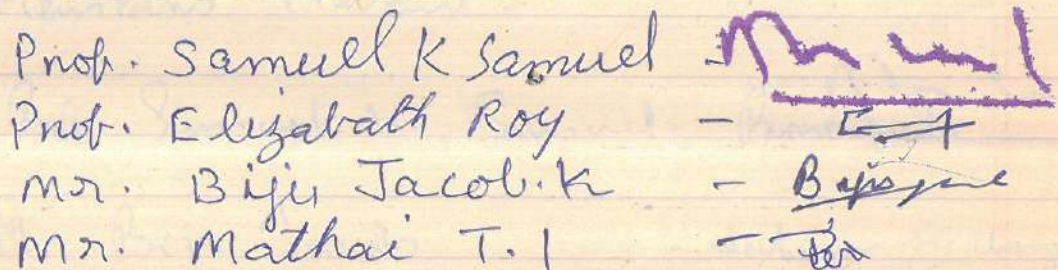 Prof. Samuel K Samuel -
Prof. Elizabath Roy -
Mr. Biju Jacob.K -
Mr. Mathai T.I -